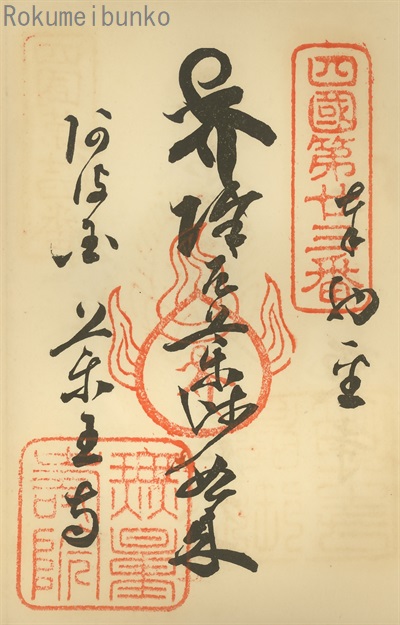 Rokumeibunko
四國第廿三番
奉納
薬師如来
阿波国 薬王寺
無量
壽院